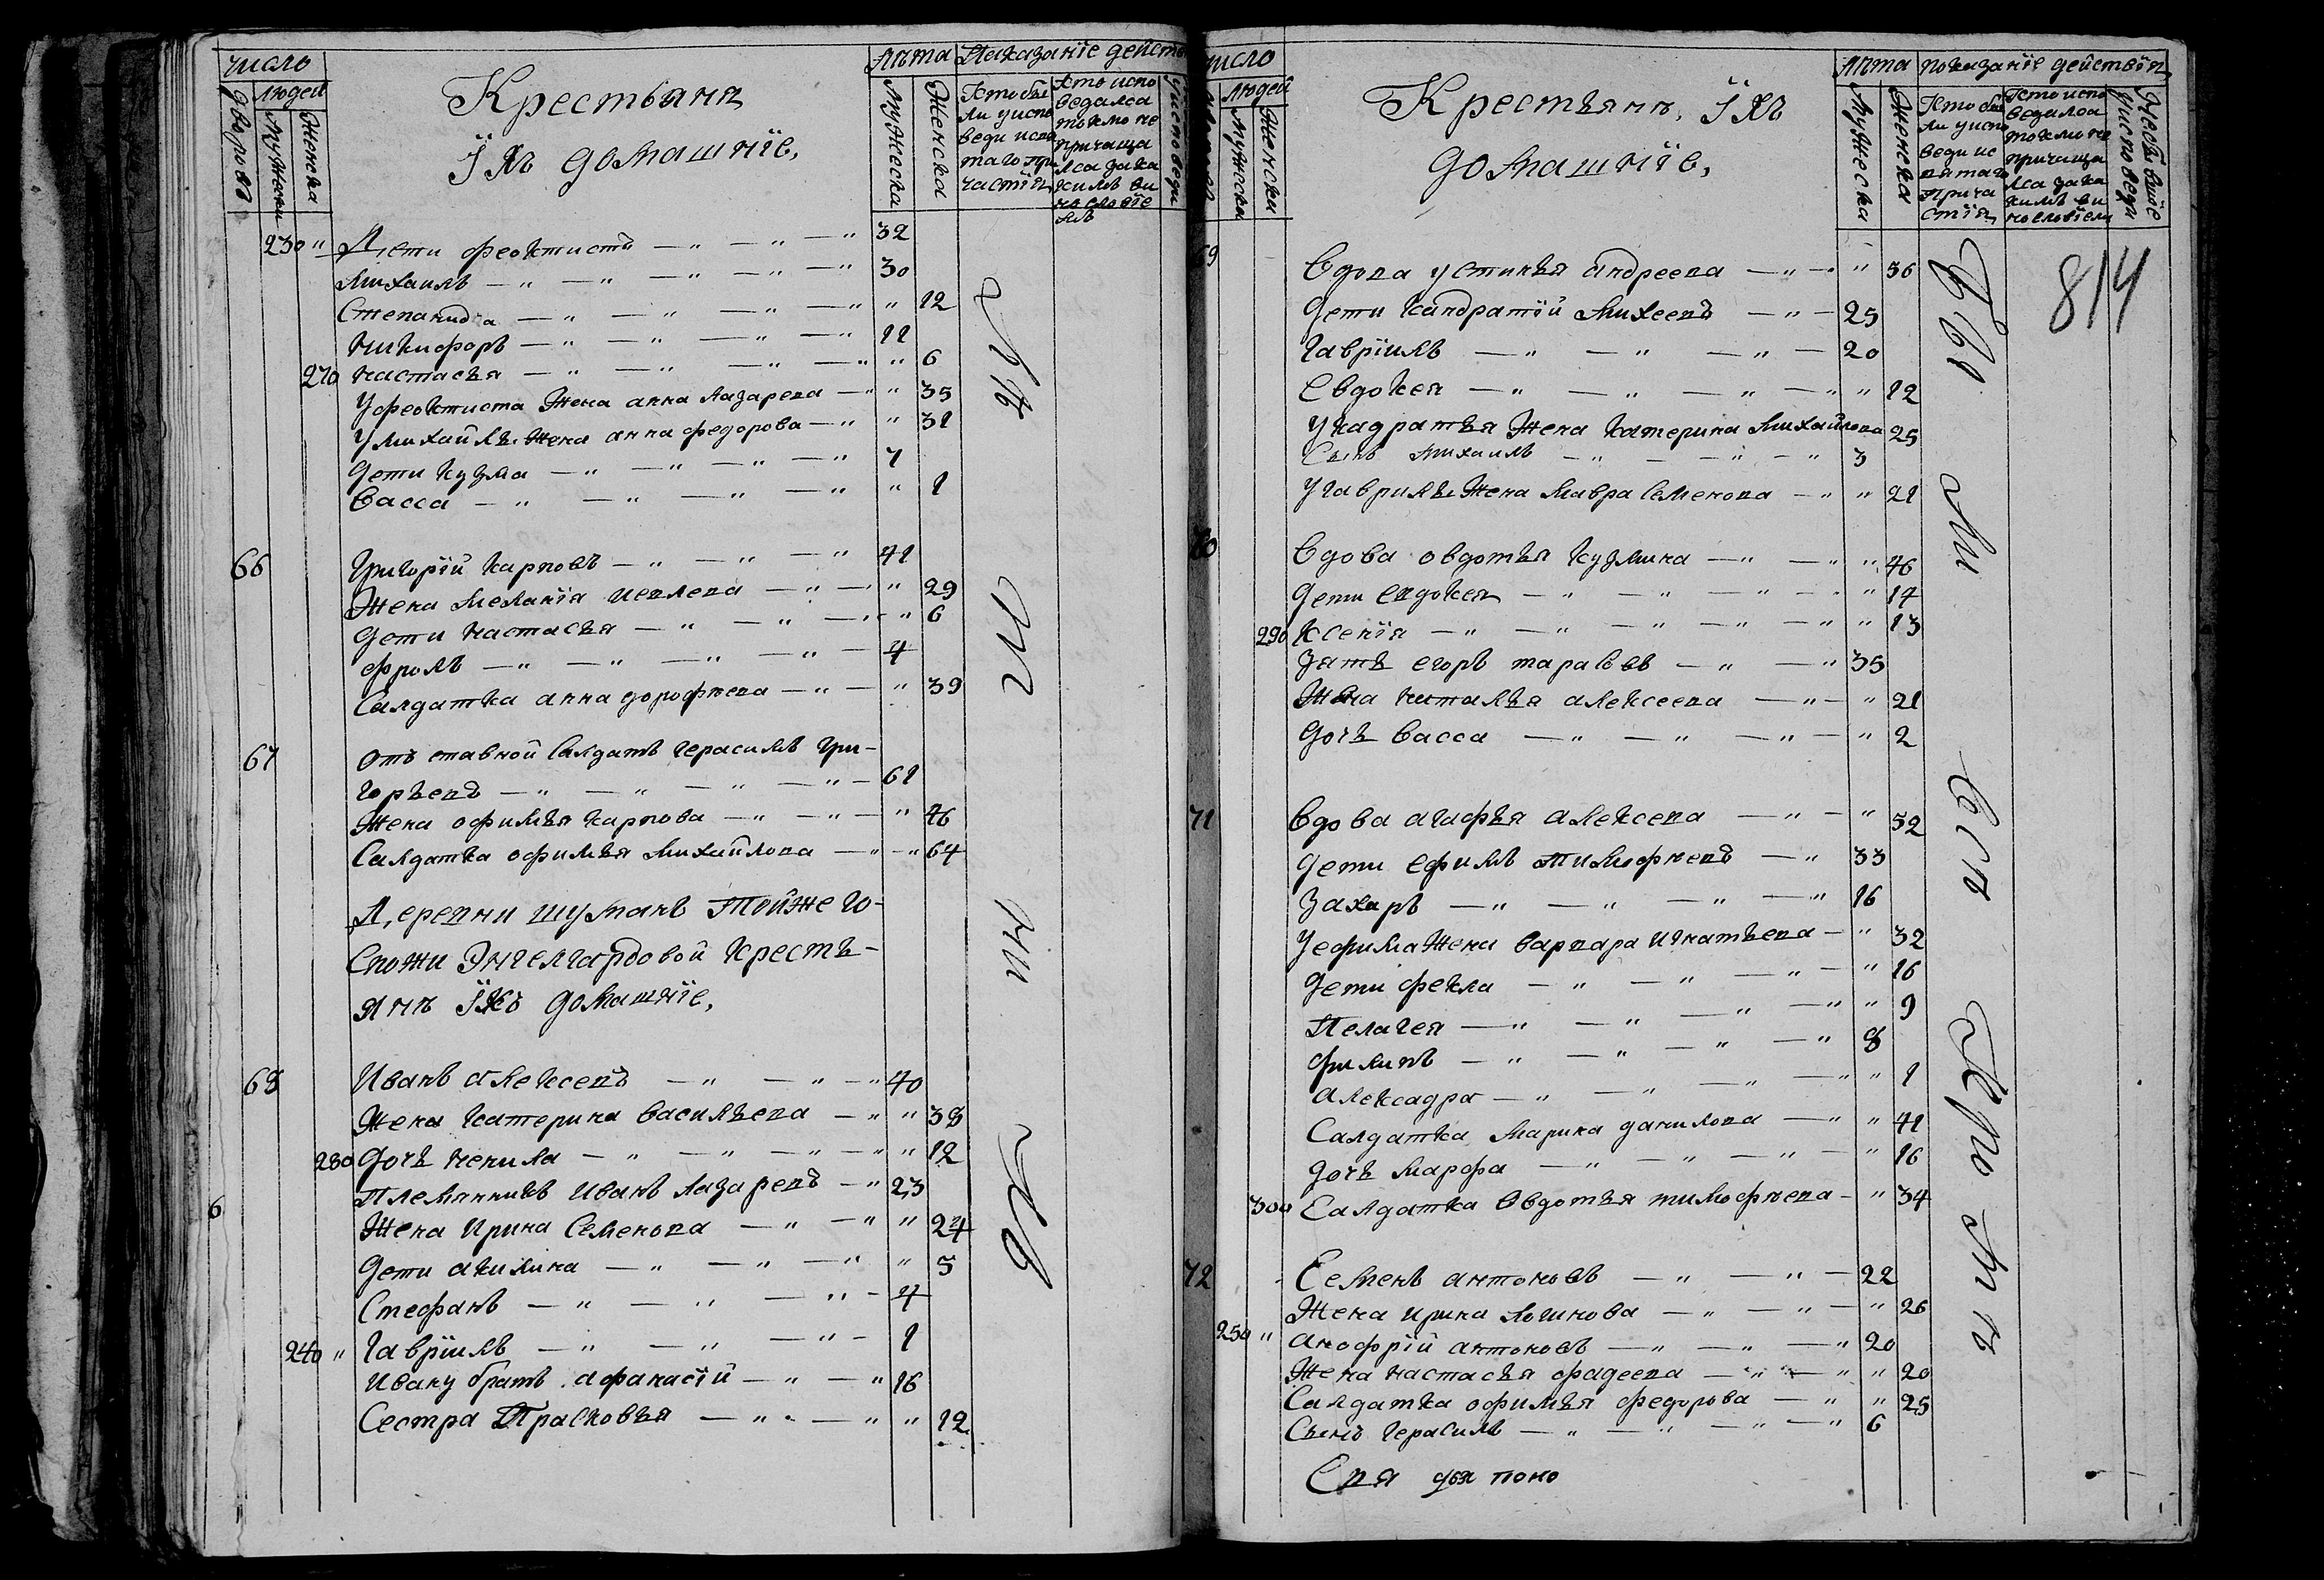 число
людей
дворовъ
Мужеска
Женска
Крестьяня
Їхъ домашнїе,
Лѣта
Показанїе действ
Мужеска
Женска
Кто бы
ли у испо
веди и
часті
Кто испо
ведалса
токмо не
причаща
лса за ка
кимъ ви
нословіе
мъ
у исповеди
230 " Дети феоктистъ — " — " — " 32
Михаилъ — " — " — " — " 30
Степанида — " — " — " — " " 12
Никифоръ — " — " — " — " 11
270 Настасья — " — " — " — " " 6
У феоктиста Жена анна лазарева — " " 35
У михайлы Жена анна федорова — " " 31
Дети кузма — " — " — " — " 7
Васса — " — " — " — " " 1
66 Григорїй карповъ — " — " — " 41
Жена Меланїя иевлева — " — " 29
Дети Настасья — " — " — " " 6
фролъ — " — " — " — " — 4
Салдатка анна дорофѣева — " — " 39
67 Отъ ставной Салдатъ герасимъ гри-
горьевъ — " — " — " — " — 61
Жена офимья карпова — " — " — " 46
Салдатка офимья михайлова — " — " 64
Деревни шуманъ Тойже го-
спожи Энгелгардовой кресть-
янъ Їхъ домашнїе,
68 Иванъ алексеевъ — " — " — " 40
Жена катерина васильева — " " 38
280 Дочь ненила — " — " — " — " " 12
Племянникъ Иванъ лазаревъ — " 23
6
Жена Ирина Семенова — " — " " 24
Дети акилина — " — " — " " 5
Стефанъ — " — " — " — 4
240 " Гаврїилъ — " — " — " — 1
Ивану братъ афанасїй — " — " 16
Сестра Прасковья — " — " " 12
число
людей
Мужеска
Женска
Крестьянъ, Їхъ
домашнїе,
Лѣта
показанїе действїя
Мужеска
Женска
Кто бы
ли у испо
веди и с
вятаго
Прича
стїя
Кто испо
ведалса
токмо не
причаща
лса за ка
кимъ ви
нословїем
Небывшїе
у исповеди
814
69 Вдова устинья андреева — " — " 56
Дети кандратїй михеевъ — " — 25
Гаврїилъ — " — " — " — 20
Евдокея — " — " — " — " " 12
У кадратья Жена катерина михайлова 25
Сынъ михаилъ — " — " — " 3
У гаврилы Жена мавра Семенова — " " 21
70 Вдова овдотья кузмина — " — " " 46
Дети евдокея — " — " — " — " 17
290 Ксенїя — " — " — " — " — " " 13
Зять егоръ тарасовъ — " — " 35
Жена наталья алексеева — " — " 21
Дочь васса — " — " — " — " 2
71 Вдова агафья алексева — " — " 52
Дети ефимъ тимофѣевъ — " 33
Захаръ — " — " — " — " 16
У ефима Жена варвара игнатьева — " 32
Дети фекла — " — " — " — " 16
Пелагея — " — " — " — " " 9
филипъ — " — " — " — " 8
александра — " — " — " — " " 1
Салдатка марина данилова — " " 41
Дочь марфа — " — " — " — " 16
300 Салдатка Овдотья тимофѣева — " 34
72 Семенъ антоновъ — " — " — 22
Жена ирина логинова — " — " — " 26
250 " анофрїй антоновъ — " — " — " 20
Жена настасья фадеева — " — " " 20
Салдатка офимья федорова — " " 25
Сынъ герасимъ — " — " — " — " 6